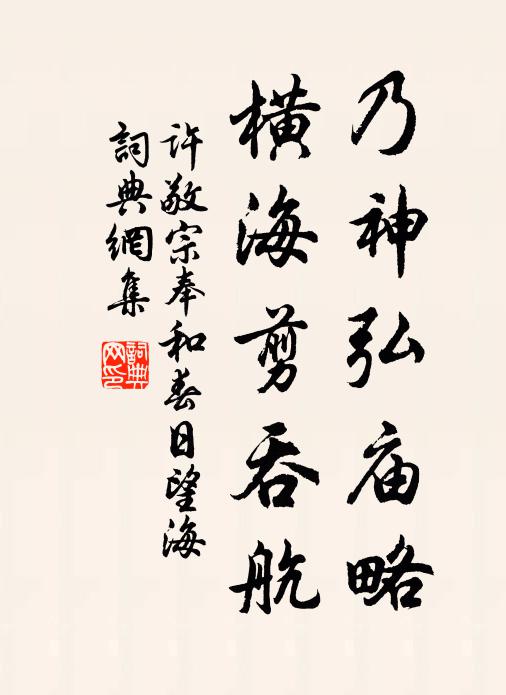 乃神弘庙略
横海剪吞航
许敬宗奉和春日望海
词典網集
詞典網印